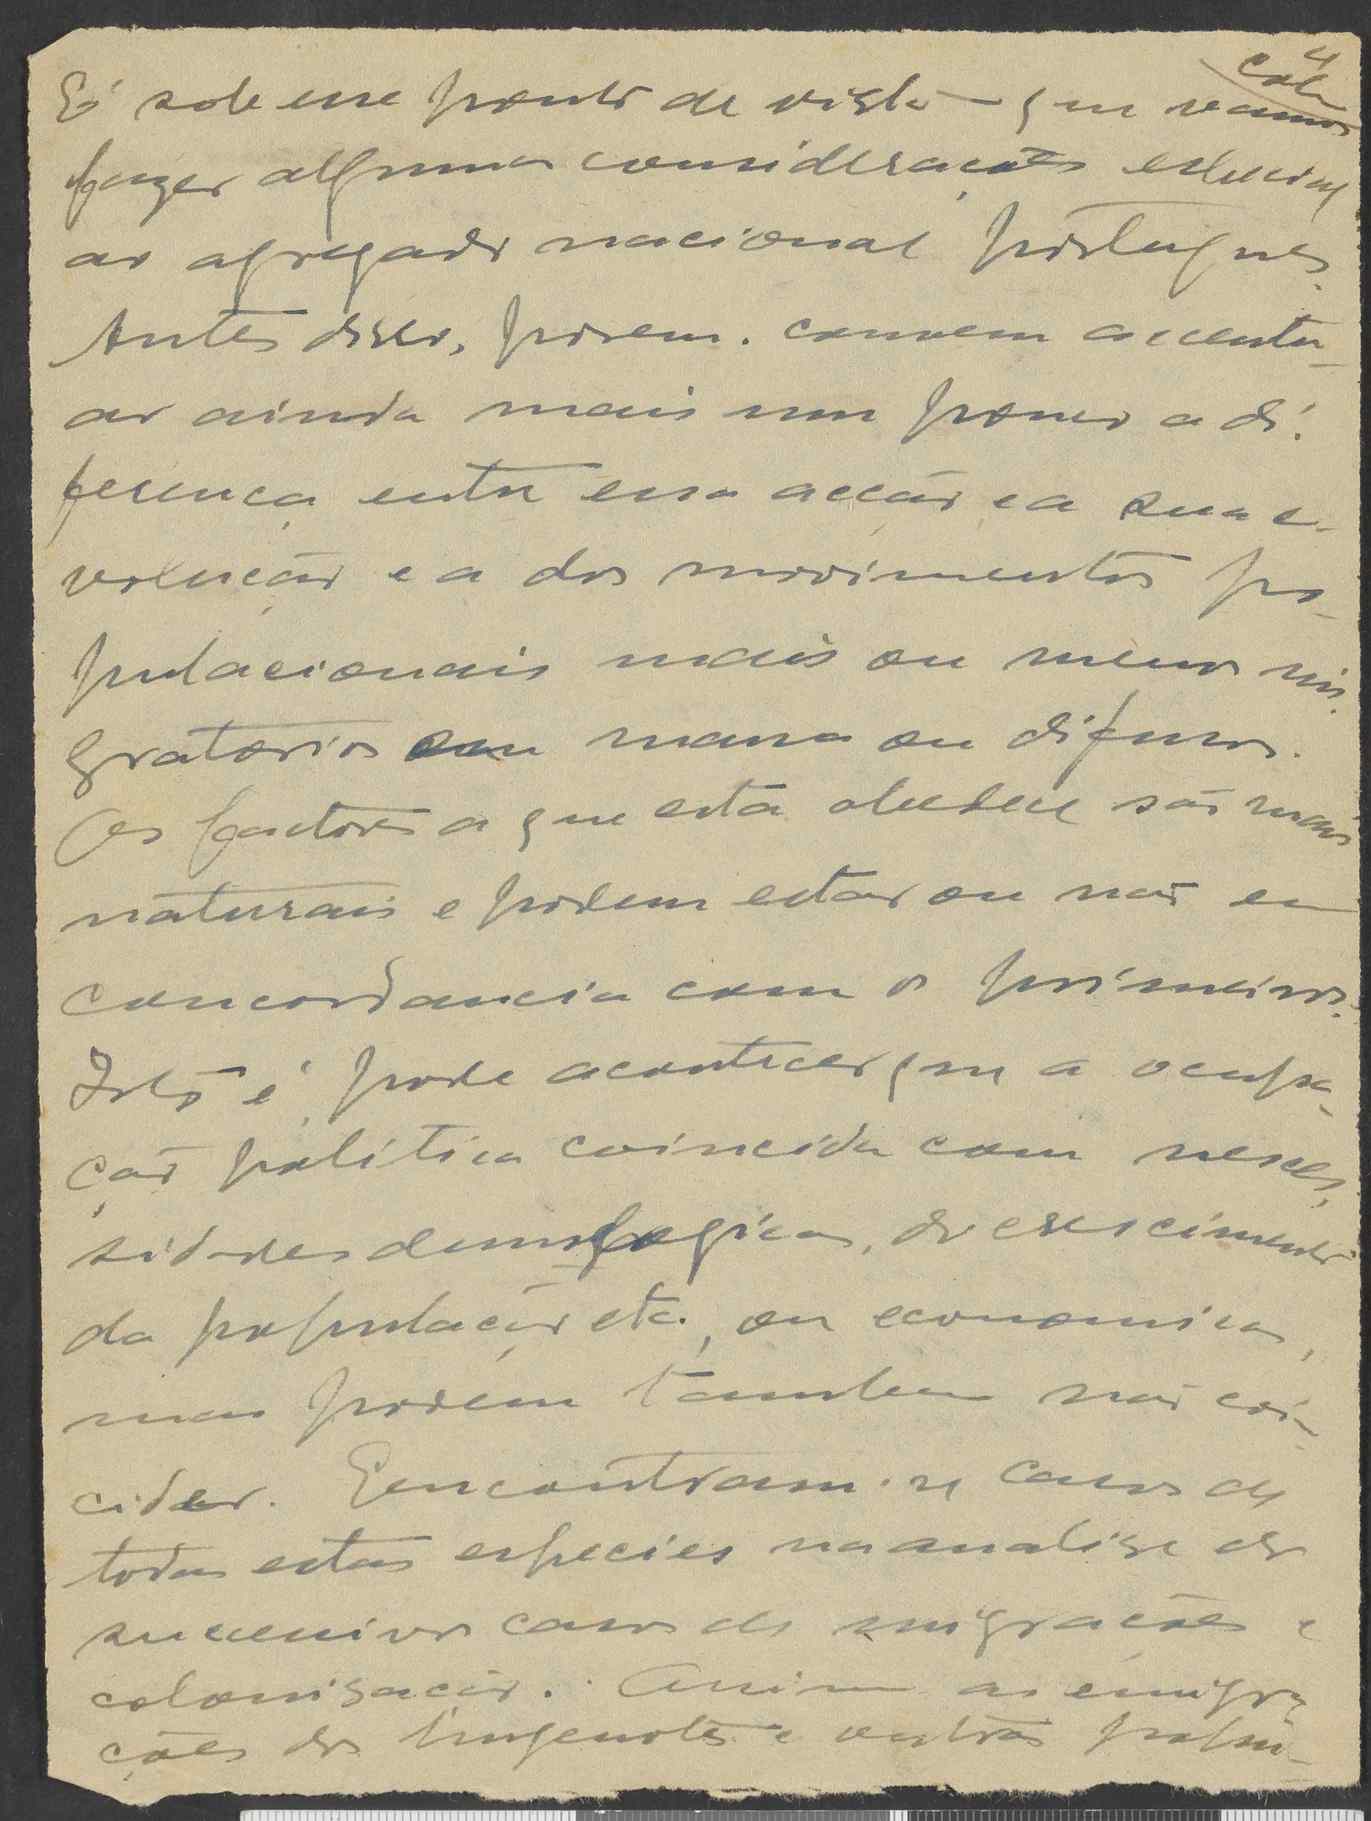 4
col.
É sob esse ponto de vista que vamos
fazer algumas considerações
ao agregado nacional português.
Antes disso, porem. convem accentu-
ar ainda mais um pouco a di-
ferença entre essa acção e a sua e-
volução e a dos movimentos po-
pulacionais mais ou menos mi-
gratorios em massa ou difusos.
Os factores a que esta obedece são mais
naturais e podem estar ou não em
concordancia com os primeiros.
Isto é, pode acontecer que a ocupa-
ção politica coincida com neces-
sidades demologicas, do crescimento
da população etc., ou economicas,
mas podem tambem não coin-
cider. Encontram-se casos de
todas estas especies na analise dos
sucessivos casos de migrações e
colonisação. Assim as emigra
ções dos hugenotes e outros popu-